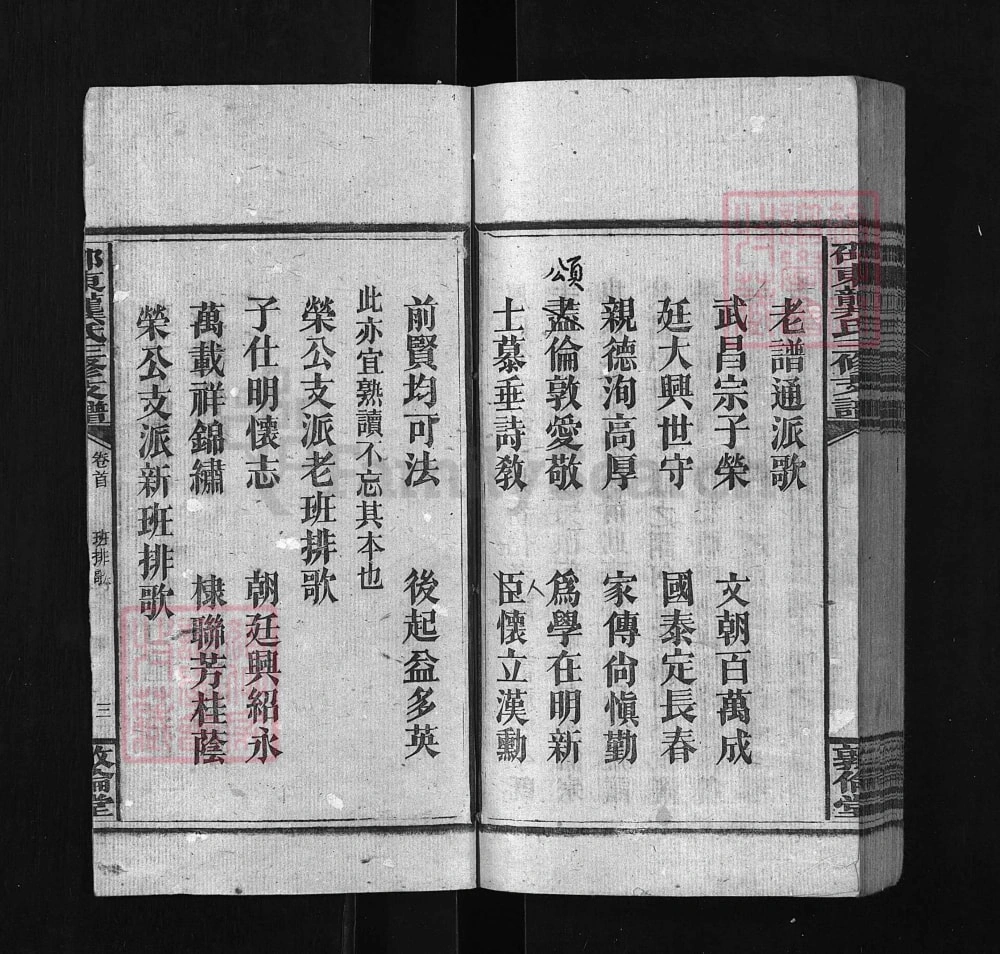 邵東龔氏三修支譜
敦倫堂
老譜通派歌
武昌宗子榮　文朝百萬成
廷大興世守　國泰定長春
親德洵高厚　家傳尚愼勤
頌
盡倫敦愛敬　爲學在明新
士慕垂詩敎　臣懷立漢勳
人
前賢均可法　後起益多英
此亦宜熟讀不忘其本也
榮公支派老班排歌
子仕明懷志　朝廷興紹永
萬載祥錦繡　棣聯芳桂蔭
榮公支派新班排歌
邵東龔氏三修支譜　卷首　班排歌　三　敦倫堂